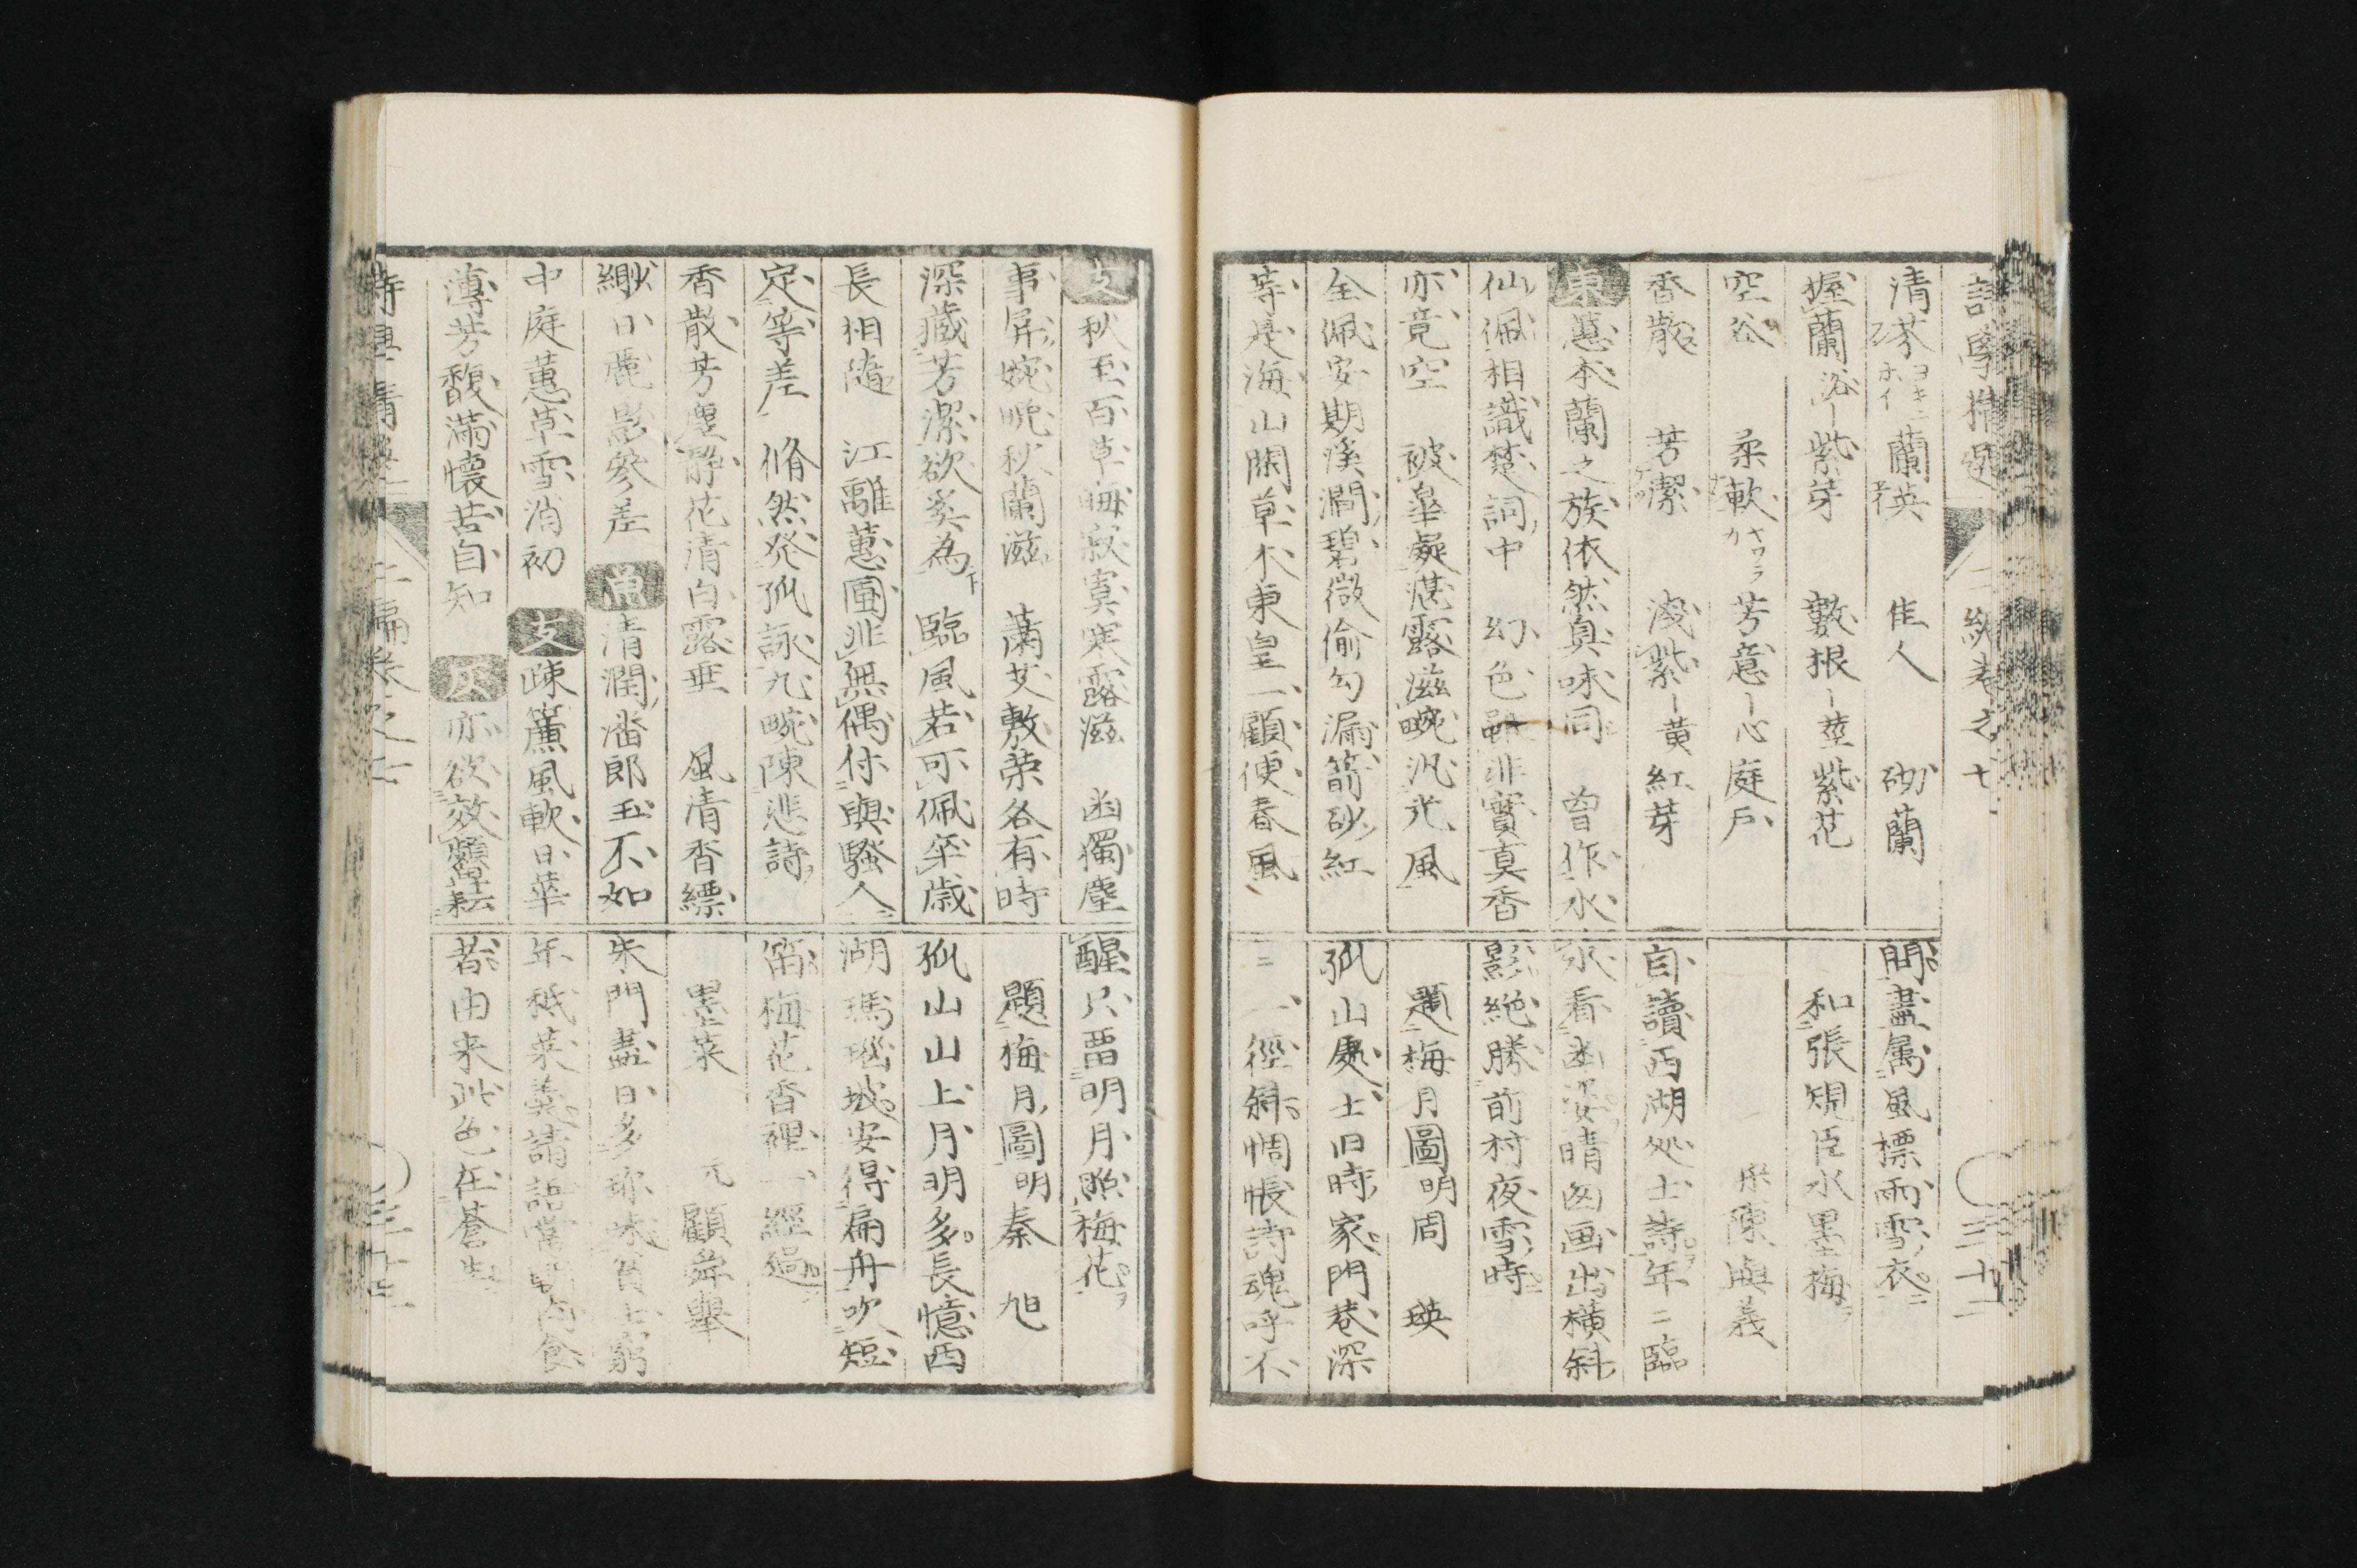 詩學精選 二編卷之七
清芬 ヨキニホイ 蘭英 佳人 砌蘭
握蘭 浴ー 紫芽 敷根ー莖 紫花
空谷 柔軟 ヤワラカ 芳意ー心 庭戸
香散 芳潔 淺紫ー黄 紅芽
東 蕙本蘭之族依然臭味同 曽作水
仙佩相識楚詞中 幻色雖非實真香
亦竟空 被皐凝湛露滋畹汎光風
全佩安期溪澗碧微偷勾漏箭砂紅
等是海山閑草木東皇一顧便春風
間盡属風標雨雪衣
和張規臣水墨梅
宋陳與義
自讀西湖処士詩年〻臨
水看幽姿晴囱画出横斜
影絶勝前村夜雪時
題梅月圖明周 瑛
孤山處士旧時家門巷深
〻一徑斜惆悵詩魂呼不
三十二
支 秋至百草晦寂寞寒露滋 幽獨塵
事屏婉晩秋蘭滋 蕭艾敷榮各有時
深藏芳潔欲奚為 臨風若可佩卒歳
長相隨 江離蕙圃非無偶付與騷人
定等差 脩然発孤詠九畹陳悲詩
香散芳塵静花清白露垂 風清香縹
緲日麗影參差 清潤潘郎玉不如
中庭蕙草雪消初 支 疎簾風軟日華
薄芳馥滿懐苦自知 灰 亦欲效顰耘
醒只畱明月照梅花
題梅月圖明秦 旭
孤山山上月明多長憶西
湖瑪瑙坡安得扁舟吹短
笛梅花香裡一經過
墨菜 元 顧舜舉
朱門盡日多珍味貧士窮
年秖菜羹請語當朝肉食
者由来此色在蒼生
詩學精選 二編卷之七 三十三